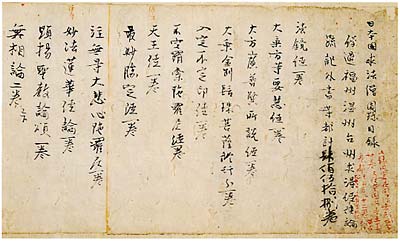 日本国求法僧圓珎目録
從過福州温州台州求得經律論
疏記外書等都計肆佰伍拾捌卷
法鏡經一卷
大乘方等要慧經一卷
大方廣普賢所說經一卷
大乘金剛髻珠菩薩脩行分一卷
入定不定印經一卷
不空羂索陁羅尼經一卷
天王經一卷
最妙勝定經一卷
注無量大慈心陁羅尼一卷
妙法蓮華經論一卷
顯揚聖教論頌一卷
無相論一卷